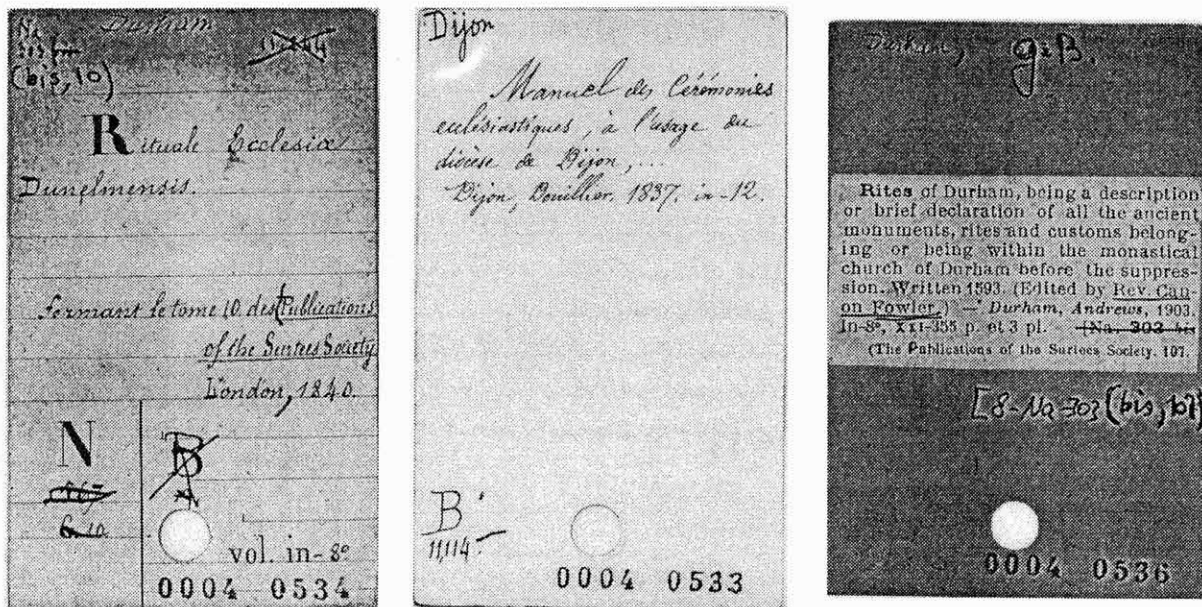 Durham
(bis, 10)
Rituale Ecclesiæ
Dunelmensis.
formant le tome 10 des (Publications
of the Surtees Society
London, 1840.
N
B
vol. in-8º
0004 0534
Dijon
Manuel des Cérémonies
ecclésiastiques, à l'usage du
diocèse de Dijon,...
Dijon, Douillier, 1837. in-12.
B
11,114
0004 0533
Durham, g.B.
Rites of Durham, being a description
or brief declaration of all the ancient
monuments, rites and customs belong-
ing or being within the monastical
church of Durham before the suppres-
sion. Written 1593. (Edited by Rev. Can-
on Fowler.) — Durham, Andrews, 1903.
In-8º, XXI-355 p. et 3 pl. [Na. 303 bi
(The Publications of the Surtees Society. 107.
[8-Na-303 (bis,
0004 0536